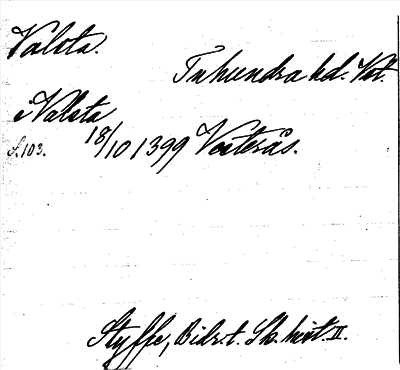 Valsta.
Tuhundra hd. Vstm.
i Valsta
S. 103. 18/10 1399 Vesterås.
Styffe, Bidr. t. Sk. hist. II.